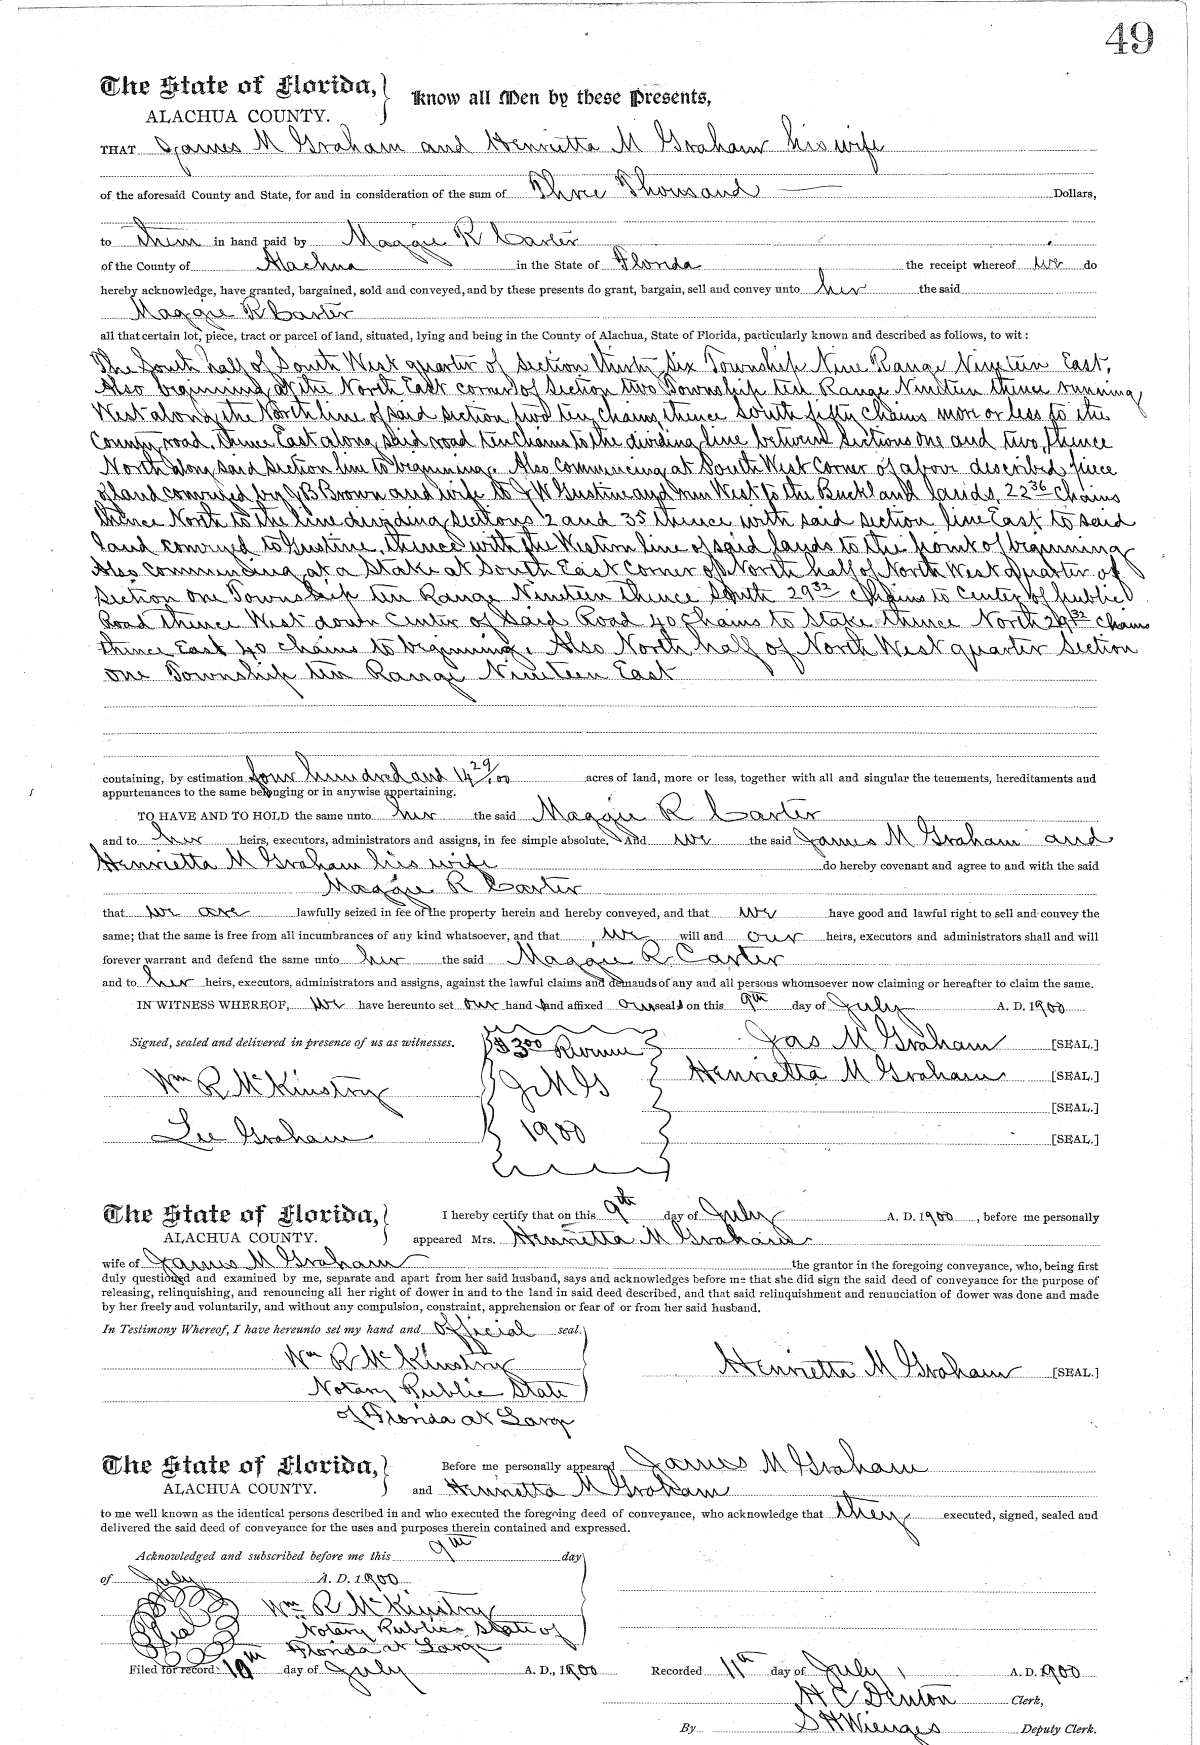 49
The State of Florida,
ALACHUA COUNTY.
Know all Men by these Presents,
THAT James M Graham and Henrietta M Graham his wife
of the aforesaid County and State, for and in consideration of the sum of Three Thousand Dollars,
to them in hand paid by Maggie R Carter
of the County of Alachua in the State of Florida the receipt whereof we do
hereby acknowledge, have granted, bargained, sold and conveyed, and by these presents do grant, bargain, sell and convey unto her the said
Maggie R Carter
all that certain lot, piece, tract or parcel of land, situated, lying and being in the County of Alachua, State of Florida, particularly known and described as follows, to wit:
The South half of South West quarter of section thirty six Township Nine Range Nineteen East,
Also beginning at the North East corner of Section two Township ten Range Nineteen thence running
West along the North line of said section two ten chains, thence South fifty chains more or less to the
County road, thence East along said road ten chains to the dividing line between sections one and two, thence
North along said section line to beginning. Also commencing at South West Corner of above described piece
of land conveyed by J B Brown and wife to J W Gustine and run West to the Buckland lands, 22 36 chains
thence North to the line dividing sections 2 and 35 thence with said section line East to said
land conveyed to Gustine, thence with the Western line of said lands to the point of beginning
Also commencing at a Stake at South East Corner of North half of North West quarter of
Section one Township ten Range Nineteen thence South 29 32 chains to center of public
Road thence West down center of said Road 40 chains to Stake thence North 29 32 chains
thence East 40 chains to beginning. Also North half of North West quarter section
one Township ten Range Nineteen East
containing, by estimation four hundred and 14 29/100 acres of land, more or less, together with all and singular the tenements, hereditaments and
appurtenances to the same belonging or in anywise appertaining.
TO HAVE AND TO HOLD the same unto her the said Maggie R Carter
and to her heirs, executors, administrators and assigns, in fee simple absolute. And we the said James M Graham and
Henrietta M Graham his wife do hereby covenant and agree to and with the said
Maggie R Carter
that we are lawfully seized in fee of the property herein and hereby conveyed, and that we have good and lawful right to sell and convey the
same; that the same is free from all incumbrances of any kind whatsoever, and that we will and our heirs, executors and administrators shall and will
forever warrant and defend the same unto her the said Maggie R Carter
and to her heirs, executors, administrators and assigns, against the lawful claims and demands of any and all persons whomsoever now claiming or hereafter to claim the same.
IN WITNESS WHEREOF, we have hereunto set our hand and affixed our seals on this 9th day of July A. D. 1900
Signed, sealed and delivered in presence of us as witnesses. $3 00 Revenue Jas M Graham [SEAL.]
Wm R McKinstry J M G Henrietta M Graham [SEAL.]
[SEAL.]
Lee Graham 1900 [SEAL.]
The State of Florida,
ALACHUA COUNTY.
I hereby certify that on this 9th day of July A. D. 1900, before me personally
appeared Mrs. Henrietta M Graham
wife of James M Graham the grantor in the foregoing conveyance, who, being first
duly questioned and examined by me, separate and apart from her said husband, says and acknowledges before me that she did sign the said deed of conveyance for the purpose of
releasing, relinquishing, and renouncing all her right of dower in and to the land in said deed described, and that said relinquishment and renunciation of dower was done and made
by her freely and voluntarily, and without any compulsion, constraint, apprehension or fear of or from her said husband.
In Testimony Whereof, I have hereunto set my hand and official seal.
Wm R McKinstry Henrietta M Graham [SEAL.]
Notary Public State
of Florida at Large
The State of Florida,
ALACHUA COUNTY.
Before me personally appeared James M Graham
and Henrietta M Graham
to me well known as the identical persons described in and who executed the foregoing deed of conveyance, who acknowledge that they executed, signed, sealed and
delivered the said deed of conveyance for the uses and purposes therein contained and expressed.
Acknowledged and subscribed before me this 9th day
of July A. D. 1900
Seal Wm R McKinstry
Notary Public State of
Florida at Large
Filed for record 10th day of July A. D., 1900 Recorded 11th day of July, A. D. 1900
H C Denton Clerk,
By S H Wienges Deputy Clerk.